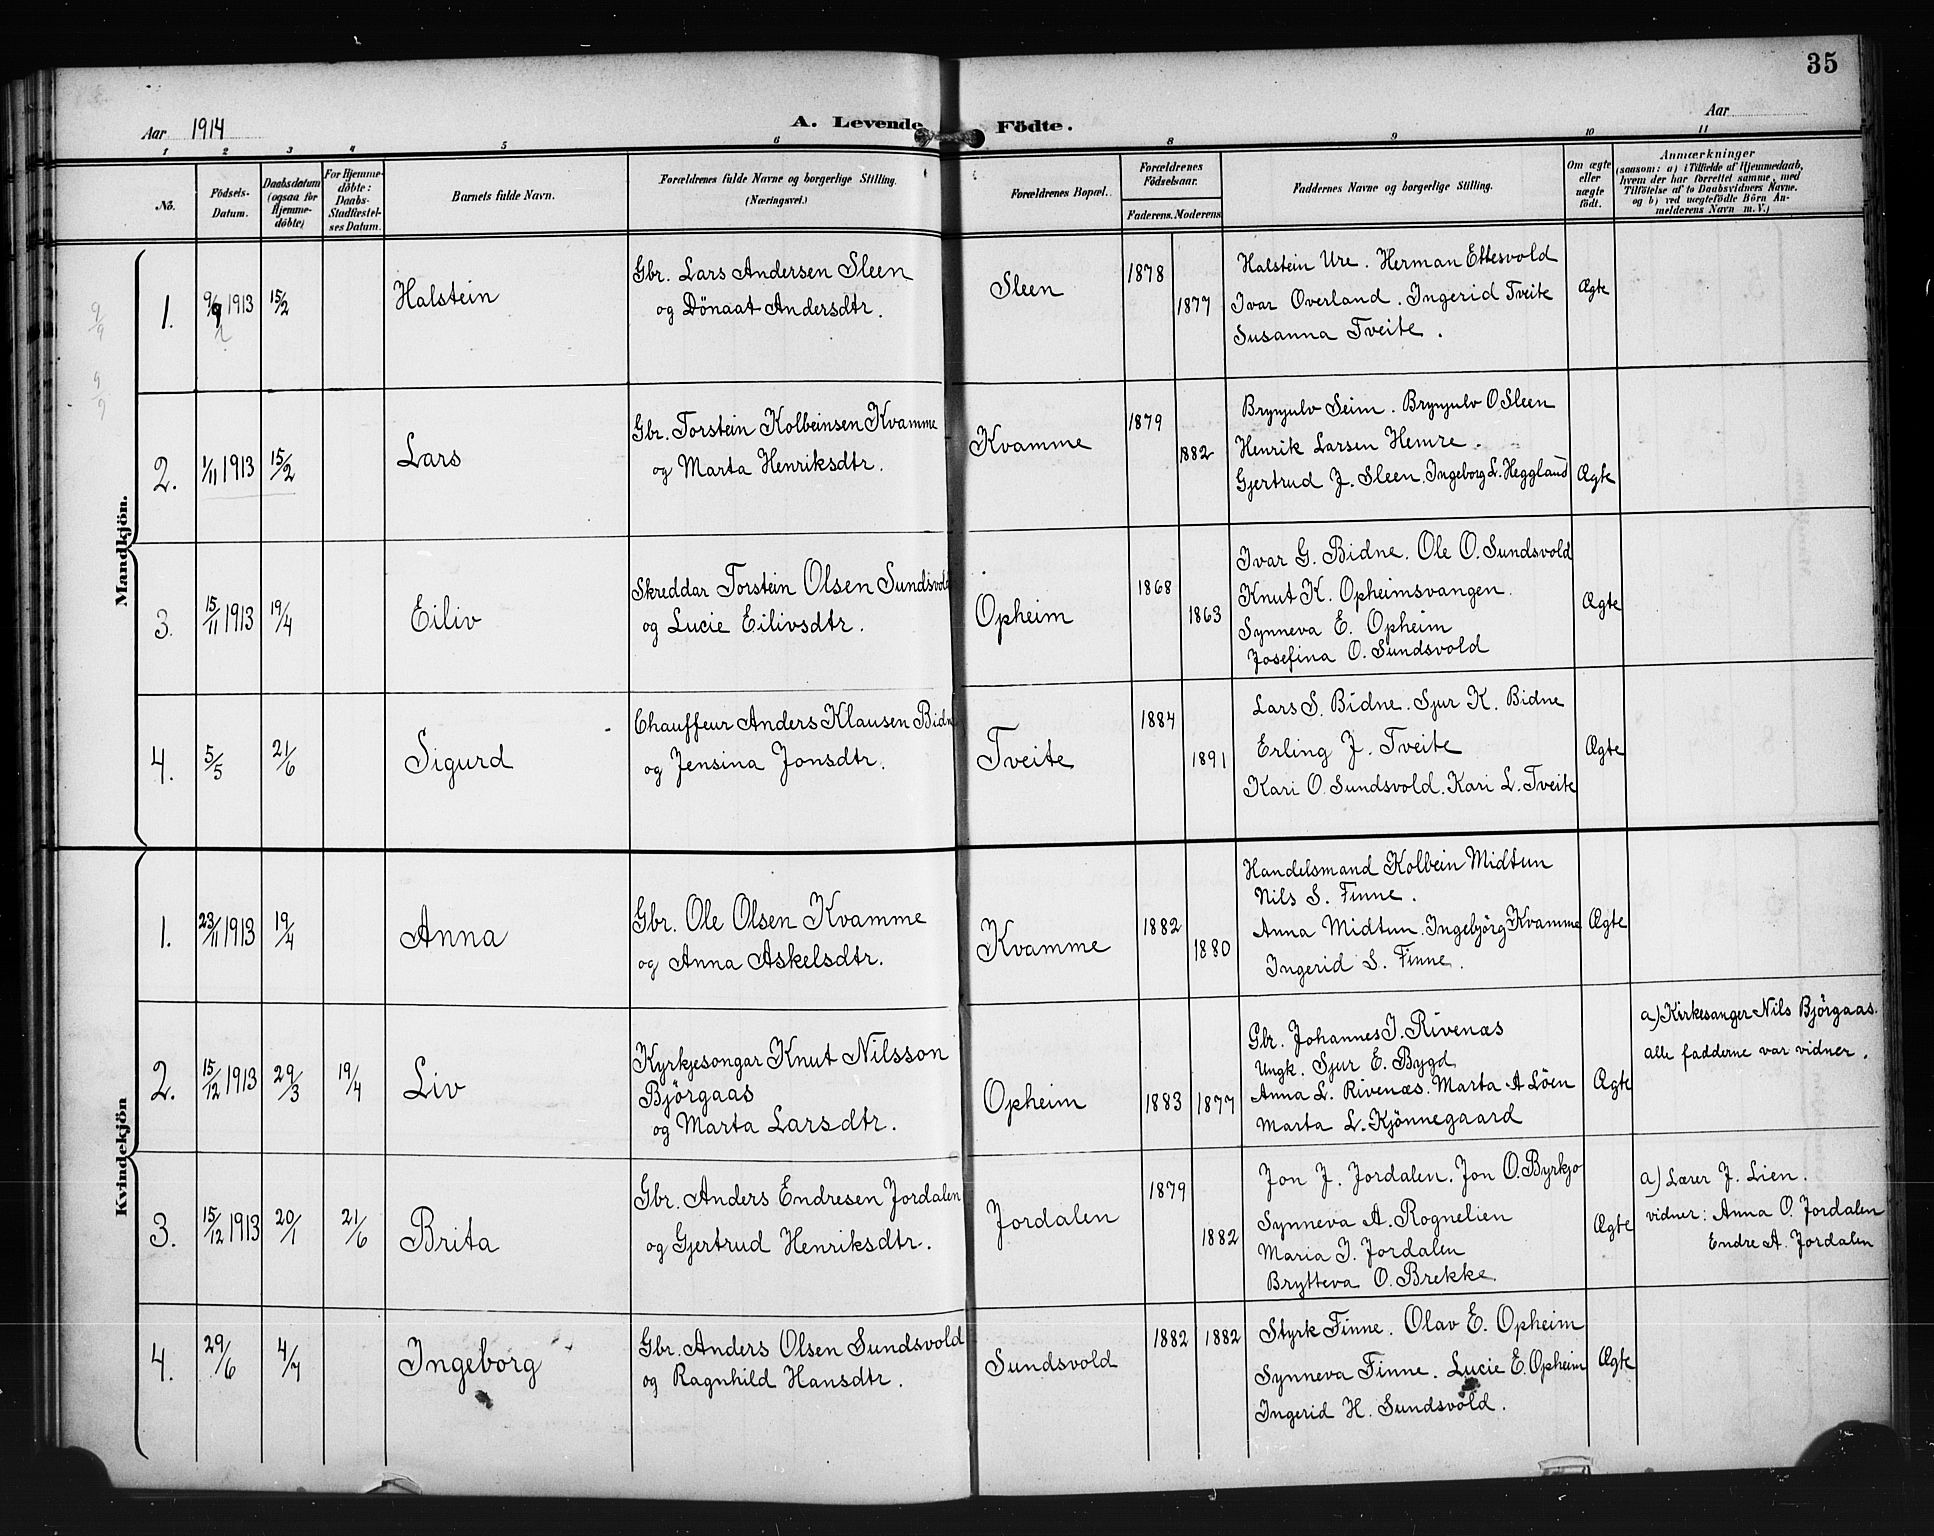 35
Aar 1914
A. Levende Födte.
Aar
1 2 3 4 5 6 8 9 10 11
No.
Födsels-Datum.
Daabsdatum (ogsaa for Hjemme-döbte)
For Hjemme-döbte: Daabs-Stadfæstel-ses Datum.
Barnets fulde Navn.
Forældrenes fulde Navne og borgerlige Stilling. (Næringsvei.)
Forældrenes Bopæl.
Forældrenes Födselsaar.
Faderens. Moderens
Faddernes Navne og borgerlige Stilling.
Om ægte eller uægte födt.
Anmærkninger
(saasom: a) i Tilfælde af Hjemmedaab,
hvem der har forrettet samme, med
Tilföielse af to Daabsvidners Navne.
og b) ved uægtefödte Börn An-
melderens Navn m. V.)
Mandkjön.
9/9
9/9
1. 9/9 1913 15/2 Halstein
Gbr. Lars Andersen Sleen
og Dönaat Andersdtr.
Sleen 1878 1877
Halstein Ure. Herman Ettesvold
Ivar Overland. Ingerid Tveite
Susanna Tveite.
Ægte
2. 1/11 1913 15/2 Lars
Gbr. Torstein Kolbeinsen Kvamme
og Marta Henriksdtr.
Kvamme 1879 1882
Brynjulv Seim. Brynjulv O Sleen
Henrik Larsen Hemre.
Gjertrud J. Sleen. Ingeborg L. Heggland
Ægte
3. 15/11 1913 19/4 Eiliv
Skreddar Torstein Olsen Sundsvold
og Lucie Eilivsdtr.
Opheim 1868 1863
Ivar G. Bidne. Ole O. Sundsvold
Knut K. Opheimsvangen.
Synneva E. Opheim
Josefina O. Sundsvold
Ægte
4. 5/5 21/6 Sigurd
Chauffeur Anders Klausen Bidn
og Jensina Jonsdtr.
Tveite 1884 1891
Lars S. Bidne. Sjur K. Bidne
Erling J. Tveite
Kari O. Sundsvold. Kari L. Tveite
Ægte
Kvindekjön
1. 23/11 1913 19/4 Anna
Gbr. Ole Olsen Kvamme
og Anna Askelsdtr.
Kvamme 1882 1880
Handelsmand Kolbein Midtun
Nils S. Finne.
Anna Midtun. Ingebjörg Kvamme
Ingerid S. Finne.
Ægte
2. 15/12 1913 29/3 19/4 Liv
Kyrkjesongar Knut Nilsson
Björgaas
og Marta Larsdtr.
Opheim 1883 1877
Gbr. Johannes J. Rivenæs
Ungk. Sjur E. Bygd
Anna L. Rivenæs. Marta A Löen
Marta L. Kjönnegaard
Ægte
a) Kirkesanger Nils Björgaas.
alle fadderne var vidner.
3. 15/12 1913 20/1 21/6 Brita
Gbr. Anders Endresen Jordalen
og Gjertrud Henriksdtr.
Jordalen 1879 1882
Jon J. Jordalen. Jon O. Byrkjo
Synneva A. Rognelien
Maria J. Jordalen
Brytteva O. Brekke.
Ægte
a) Lærer J. Lien.
vidner: Anna O. Jordalen
Endre A. Jordalen
4. 29/6 4/7 Ingeborg
Gbr. Anders Olsen Sundsvold
og Ragnhild Hansdtr.
Sundsvold 1882 1882
Styrk Finne. Olav E. Opheim
Synneva Finne. Lucie E. Opheim
Ingerid H. Sundsvold.
Ægte